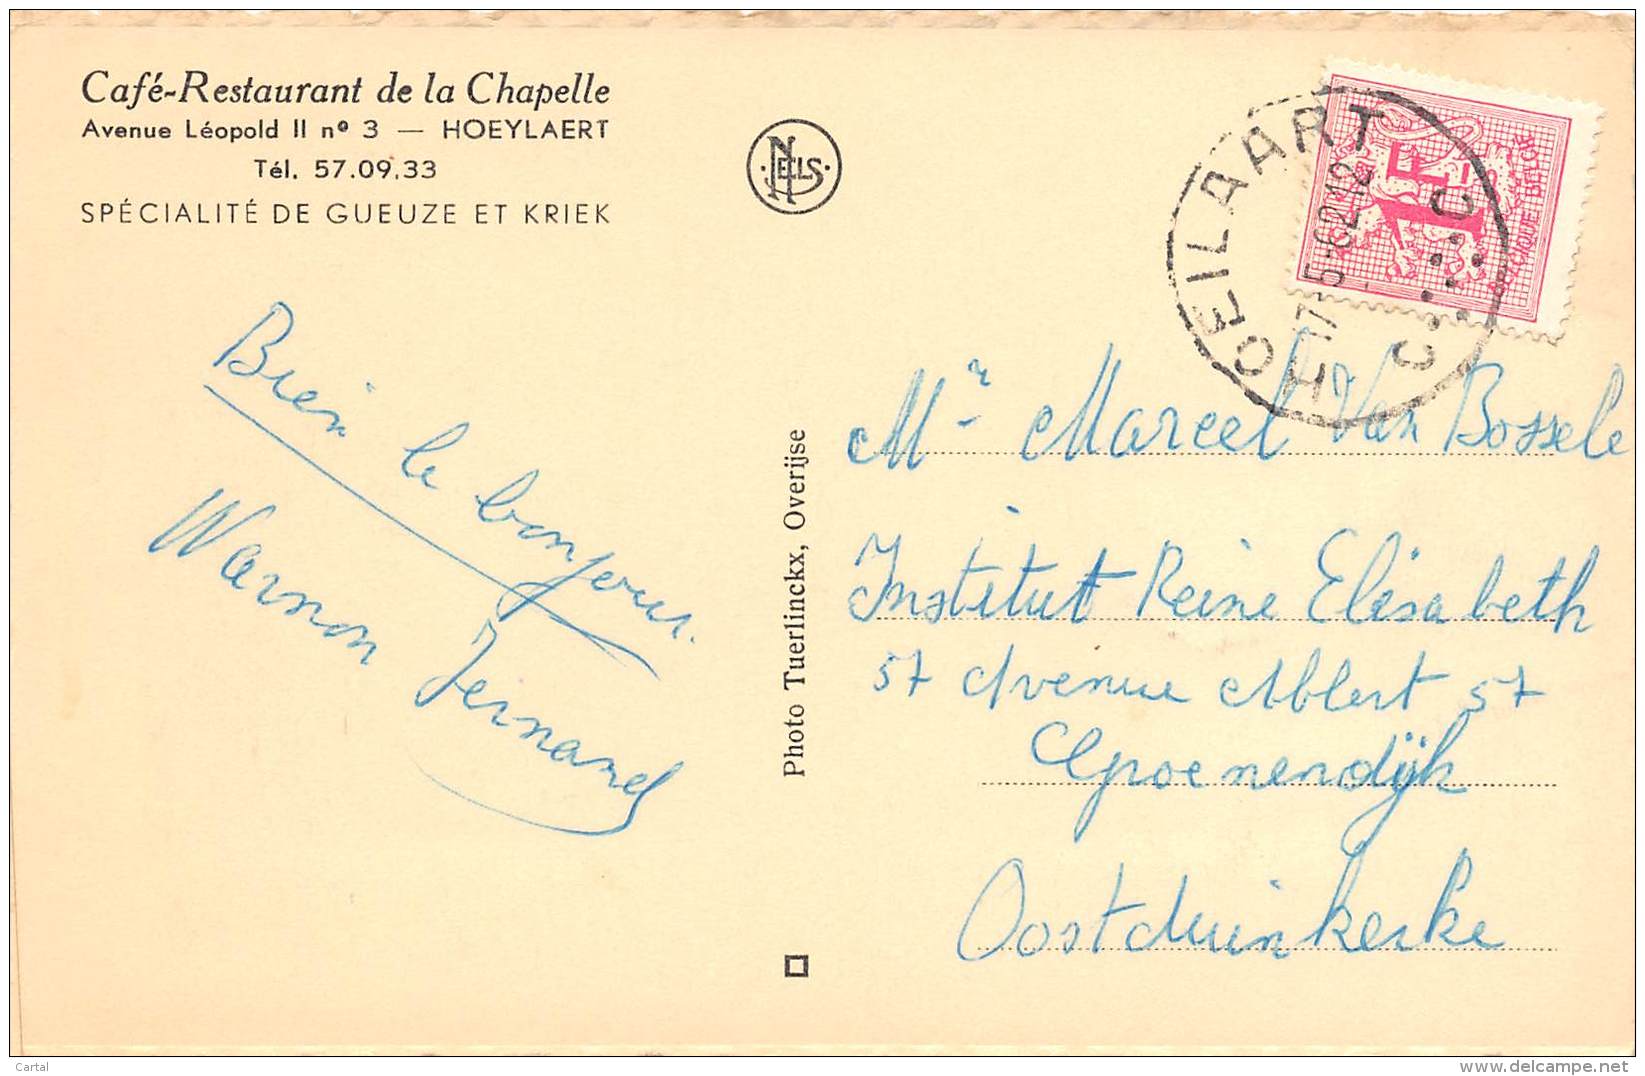 Café-Restaurant de la Chapelle
Avenue Léopold II nº 3 — HOEYLAERT
Tél. 57.09.33
SPÉCIALITÉ DE GUEUZE ET KRIEK
NELS
Bien le bonjour.
Warnon Fernand
Photo Tuerlinckx, Overijse
HOEILAART
17-5-62-12
C C
1F
BELGIQUE BELGIË
Mr Marcel Van Bossele
Institut Reine Elisabeth
57 Avenue Albert 57
Groenendÿk
Oostduinkerke
Cartal
www.delcampe.net